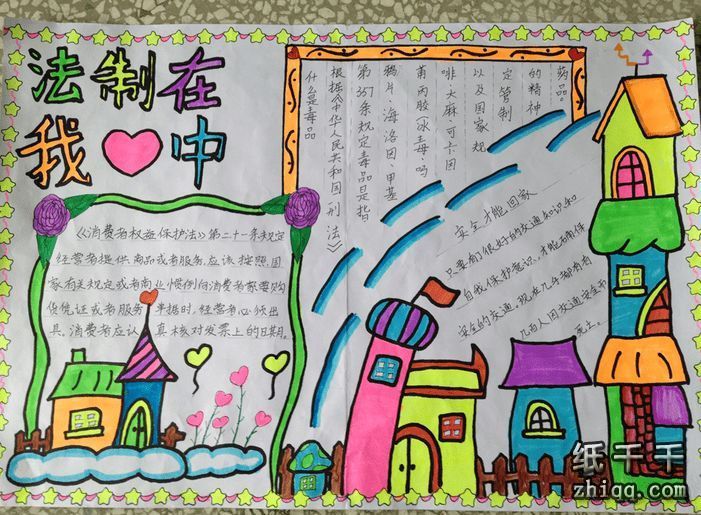 法制在
我中
《消费者权益保护法》第二十一条规定
经营者提供商品或者服务,应该按照国
家有关规定或者商业惯例向消费者索要购
货凭证或者服务单据时,经营者必须出
具。消费者应认真核对发票上的日期。
什么是毒品
根据《中华人民共和国刑法》
第357条规定毒品是指
鸦片、海洛因、甲基
苯丙胺(冰毒)、吗
啡、大麻、可卡因
以及国家规
定管制
的精神
药品。
安全才能回家
只要有了很好的交通知识和
自我保护意识,才能有确保
安全的交通,现在几乎都有
几百人因交通安全而
死亡。
纸千千
zhiqq.com